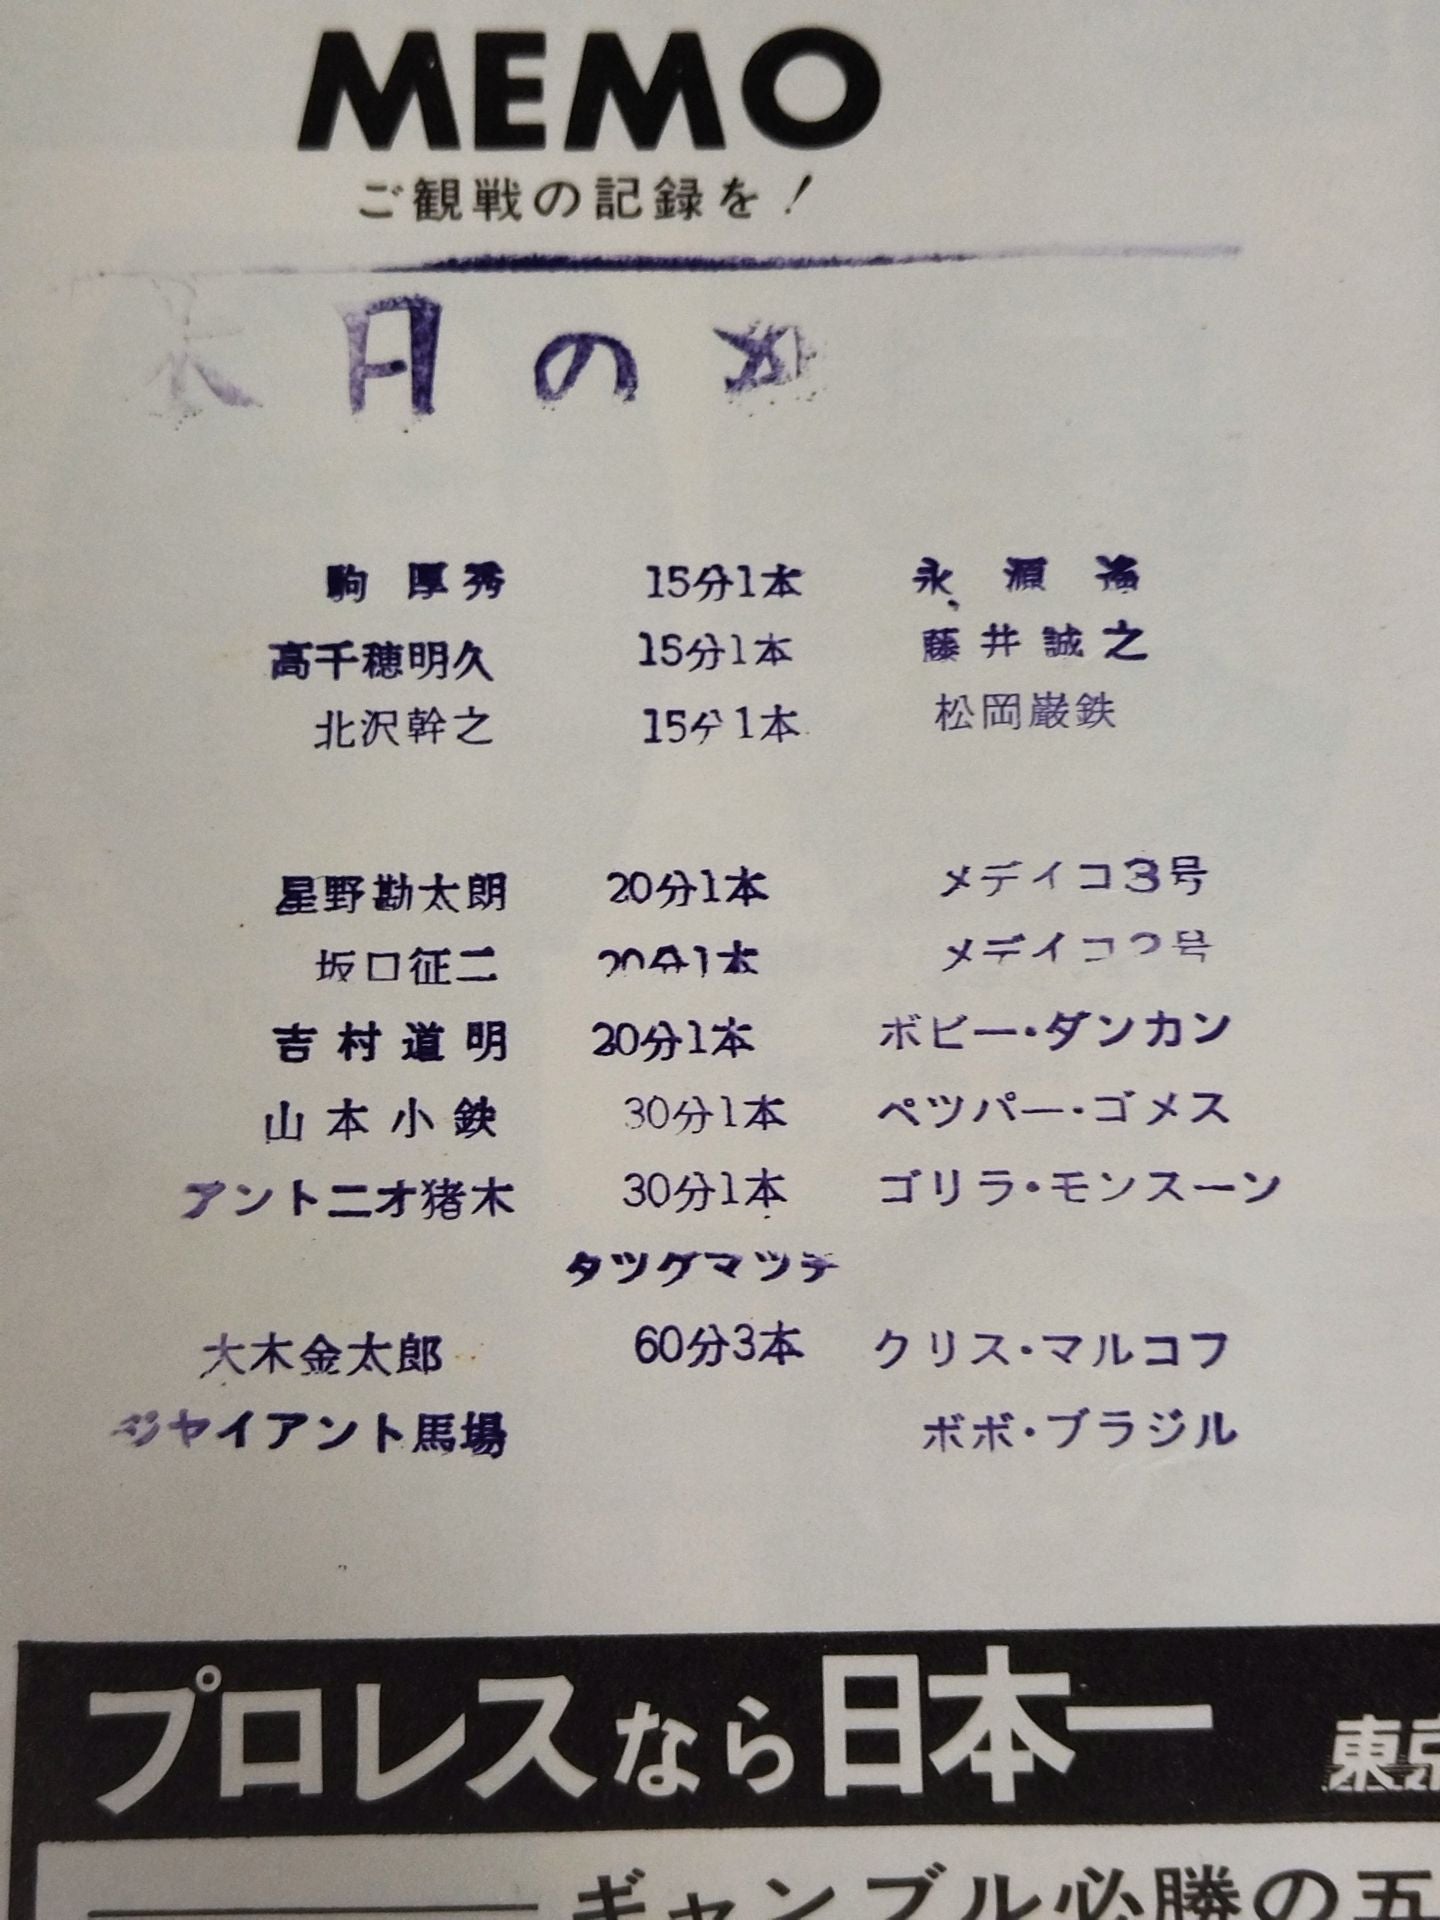 MEMO
ご観戦の記録を!
日の
駒厚秀 15分1本 永源遙
高千穂明久 15分1本 藤井誠之
北沢幹之 15分1本 松岡巌鉄
星野勘太朗 20分1本 メデイコ3号
坂口征二 20分1本 メデイコ2号
吉村道明 20分1本 ボビー・ダンカン
山本小鉄 30分1本 ペツパー・ゴメス
アントニオ猪木 30分1本 ゴリラ・モンスーン
タツグマツチ
大木金太郎 60分3本 クリス・マルコフ
ジヤイアント馬場 ボボ・ブラジル
プロレスなら日本一 東京
ギャンブル必勝の五